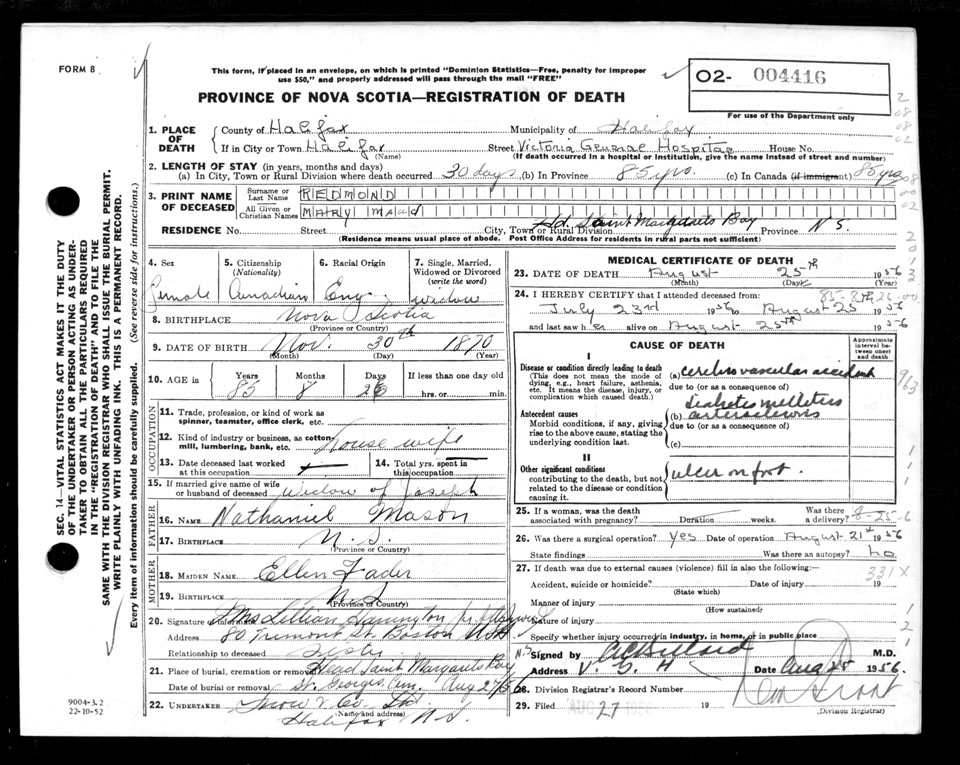 FORM 8
This form, if placed in an envelope, on which is printed "Dominion Statistics—Free, penalty for improper
use $50," and properly addressed will pass through the mail "FREE"
O2- 004416
For use of the Department only
PROVINCE OF NOVA SCOTIA—REGISTRATION OF DEATH
SEC. 14—VITAL STATISTICS ACT MAKES IT THE DUTY
OF THE UNDERTAKER OR PERSON ACTING AS UNDER-
TAKER TO OBTAIN ALL THE PARTICULARS REQUIRED
IN THE "REGISTRATION OF DEATH" AND TO FILE THE
SAME WITH THE DIVISION REGISTRAR WHO SHALL ISSUE THE BURIAL PERMIT.
WRITE PLAINLY WITH UNFADING INK. THIS IS A PERMANENT RECORD.
Every item of information should be carefully supplied. (See reverse side for instructions.)
1. PLACE OF DEATH County of Halifax Municipality of Halifax
If in City or Town Halifax Street Victoria General Hospital House No.
(Name) (If death occurred in a hospital or institution, give the name instead of street and number)
2. LENGTH OF STAY (in years, months and days)
(a) In City, Town or Rural Division where death occurred 30 days (b) In Province 85 yrs. (c) In Canada (if immigrant) 85 yrs
3. PRINT NAME OF DECEASED Surname or Last Name REDMOND
All Given or Christian Names MARY MAUD
RESIDENCE No. Street City, Town or Rural Division Hd. Saint Margarets Bay Province N S.
(Residence means usual place of abode. Post Office Address for residents in rural parts not sufficient)
4. Sex 5. Citizenship (Nationality) 6. Racial Origin 7. Single, Married, Widowed or Divorced (write the word)
Female Canadian Eng widow
8. BIRTHPLACE Nova Scotia
(Province or Country)
9. DATE OF BIRTH Nov. 30th 1870
(Month) (Day) (Year)
10. AGE in Years Months Days If less than one day old
85 8 26 hrs. or min.
OCCUPATION
11. Trade, profession, or kind of work as
spinner, teamster, office clerk, etc.
12. Kind of industry or business, as cotton-
mill, lumbering, bank, etc. House wife
13. Date deceased last worked
at this occupation
14. Total yrs. spent in
this occupation
15. If married give name of wife
or husband of deceased Widow of Joseph
FATHER
16. NAME Nathaniel Mason
17. BIRTHPLACE N.S.
(Province or Country)
MOTHER
18. MAIDEN NAME Ellen Fader
19. BIRTHPLACE N.S
(Province or Country)
20. Signature of informant Mrs Lillian
Address 80 Tremont St. Boston USA
Relationship to deceased Sister
21. Place of burial or removal Head Saint Margarets Bay
Date of burial or removal St. Georges Cem. Aug 27/56
22. UNDERTAKER Snow & Co. Ltd
(Name and address)
Halifax N.S.
9004-3.2
22-10-52
MEDICAL CERTIFICATE OF DEATH
23. DATE OF DEATH August 25th 1956
(Month) (Day) (Year)
24. I HEREBY CERTIFY that I attended deceased from
July 23rd 1956 to August 25 1956
and last saw her alive on August 25th 1956
CAUSE OF DEATH
Approximate interval between onset and death
I
Disease or condition directly leading to death
(This does not mean the mode of
dying, e.g., heart failure, asthenia,
etc. It means the disease, injury, or
complication which caused death.)
(a) cerebrovascular accident
due to (or as a consequence of)
Antecedent causes
Morbid conditions, if any, giving
rise to the above cause, stating the
underlying condition last.
diabetes mellitus
(b) arteriosclerosis
due to (or as a consequence of)
(c)
II
Other significant conditions
contributing to the death, but not
related to the disease or condition
causing it.
ulcer on foot.
25. If a woman, was the death
associated with pregnancy? Duration weeks. Was there a delivery?
8-25-6
26. Was there surgical operation? yes Date of operation August 21st 1956
State findings Was there an autopsy? no
27. If death was due to external causes (violence) fill in also the following:
331X
Accident, suicide or homicide? Date of injury 19
(State which)
Manner of injury
(How sustained)
Nature of injury
Specify whether injury occurred in industry, in home, or in public place
Signed by M.D.
Address V. G. H Date Aug 25 1956.
28. Division Registrar's Record Number
29. Filed AUG 27 1956 19
(Division Registrar)